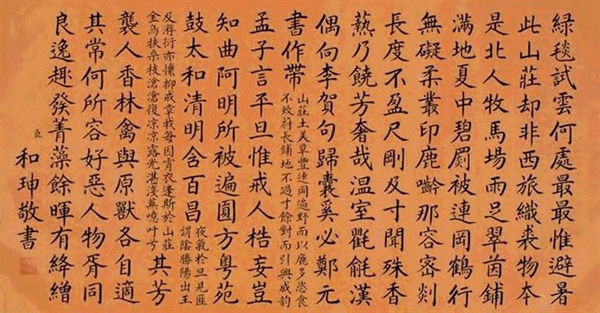 綠毯試雲何處最最惟避暑
此山莊却非西旅織裘物本
是北人牧馬場雨足翠茵鋪
滿地夏中碧罽被連岡鶴行
無礙柔叢印鹿齝那容密剡
長度不盈尺剛及寸聞殊香
爇乃饒芳奢哉溫室氍毹漢
偶向李賀句歸囊奚必鄭元
書作帶
山莊土美草豐連岡遍野而以鹿多恣食
不致長鋪地不過寸餘對而引興成韵
孟子言平旦惟戒人牿妄豈
知曲阿明所被遍圓方粵苑
鼓太和清明含百昌
夜氣於旦見匪
謂陰勝陽出王
及游衍亦懍抑戒章我每因宵衣逢斯於山莊
金烏扶桑枝滄滄復凉凉露光湛淺蕪噫吁兮
其芳
襲人香林禽與原獸各自適
其常何所容好惡人物胥同
良逸趣發菁藻餘暉有絳繒
臣和珅敬書